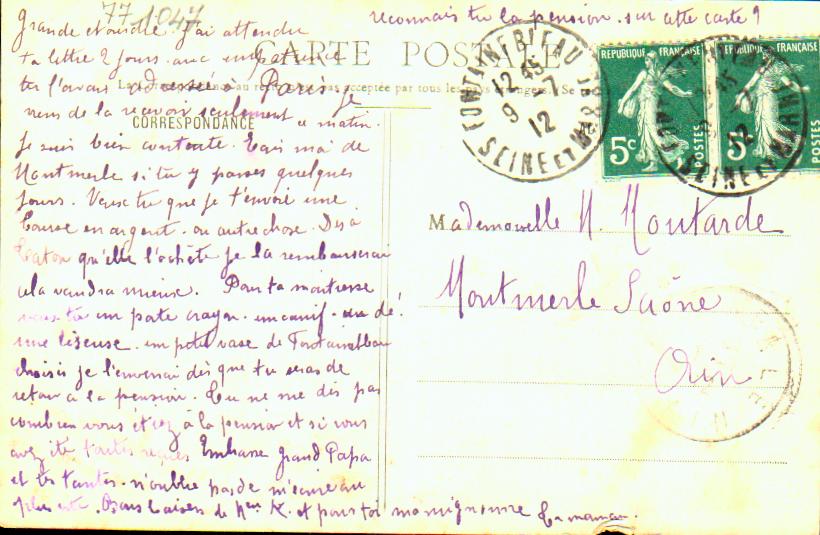 77 1047
reconnais tu la pension sur cette carte ?
Grande J'ai attendu
ta lettre 2 jours avec impatience
tu l'avais adressée à Paris je
viens de la recevoir seulement ce matin.
Je suis bien contente. Ecris moi de
Montmerle si tu y passes quelques
jours. Veux tu que je t'envoie une
bourse en argent. ou autre chose. Dis à
Taton qu'elle l'achète je la rembourserai
cela vaudra mieux. Pour ta maitresse
veux tu un porte crayon. un canif. un dé!
une liseuse. un petit vase de Fontainebleau
choisis je l'enverrai dès que tu seras de
retour à la pension. Tu ne me dis pas
combien vous étiez à la pension et si vous
avez été toutes reçues Embrasse Grand Papa
et tes tantes. n'oublie pas de m'écrire au
plus vite. Bons baisers de Mme K. et pour toi ma mignonne Ta maman.
CARTE POSTALE
CORRESPONDANCE
FONTAINEBLEAU
SEINE ET MARNE
12 45
9 -7
12
RÉPUBLIQUE FRANÇAISE
5c
POSTES
RÉPUBLIQUE FRANÇAISE
5c
POSTES
Mademoiselle M. Moutarde
Montmerle Saône
Ain